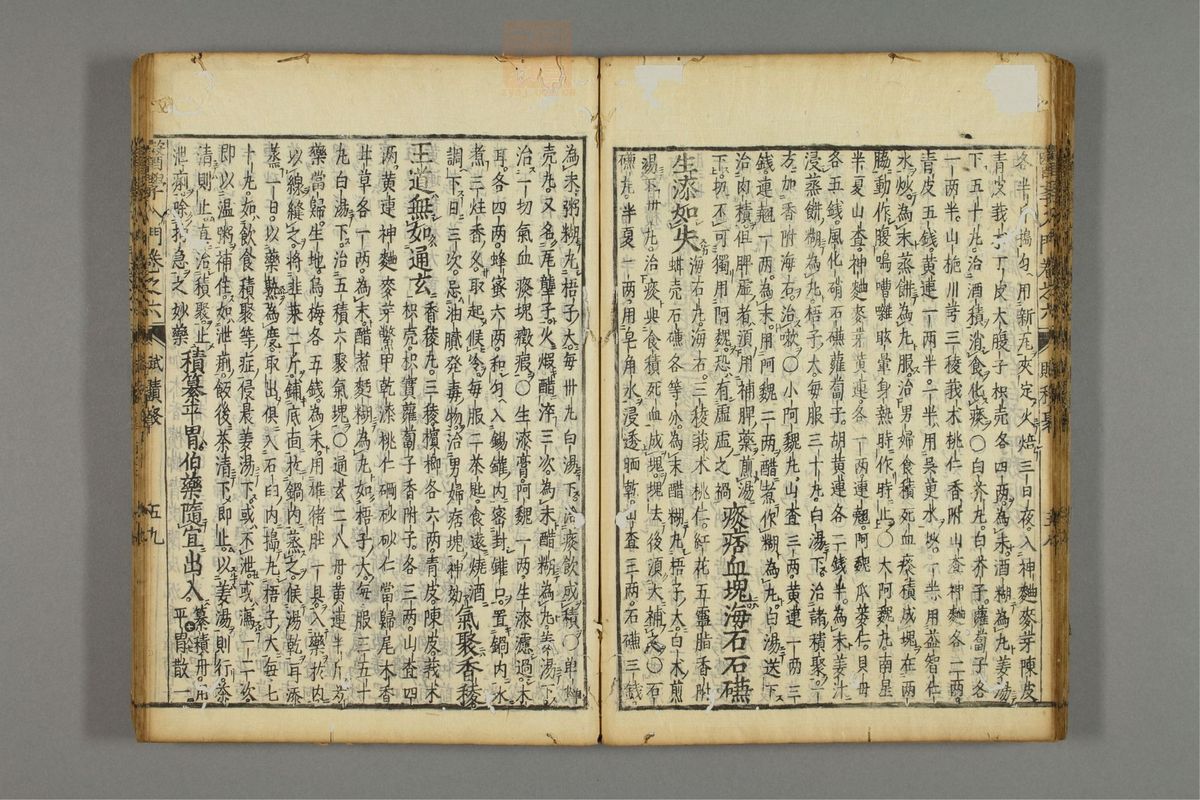 各半搗勻用新瓦夾定火焙三日夜入神麯麥芽陳皮
青皮莪朮丁皮大腹子枳壳各四兩為末酒糊為丸姜湯
下五十丸治酒積消食化痰○白芥丸白芥子蘿蔔子各
一兩半山梔川芎三稜莪朮桃仁香附山查神麯各一兩
青皮五錢黃連一兩半一半用吳茱水炒一半用益智仁
水炒為末蒸餅為丸服治男婦食積死血痰積成塊在兩
脇動作腹鳴嘈囃眩暈身熱時作時止○大阿魏丸南星
半夏山查神麯麥芽黃連各一兩連翹阿魏瓜蔞仁貝母
各五錢風化硝石礆蘿蔔子胡黃連各二錢半為末姜汁
浸蒸餅糊為丸梧子大每服三十丸白湯下治諸積聚一
方加香附海石治嗽○小阿魏丸山查三兩黃連一兩三
錢連翹一兩為末用阿魏二兩醋煮作糊為丸白湯送下
治肉積但脾虛者須用補脾藥煎湯
下切不可獨用阿魏恐有虛虛之禍 痰痞血塊海石石礆
生漆如失 蚌壳石礆各等分為末醋糊丸梧子大白朮煎
湯下卅丸治痰與食積死血成塊塊去後須大補
礆丸半夏一兩用皂角水浸透晒乾山查三兩石礆三錢
為末粥糊丸梧子大每卅丸白湯下治痰飲成積○單
壳丸又名瓦壟子火煆醋淬三次為末醋糊為丸姜湯下
治一切氣血痰塊癥瘕○生漆膏阿魏一兩生漆濾過木
耳各四兩蜂蜜六兩和勻入錫罐內密封罐口置鍋內水
煮三炷香久取起候冷每服二茶匙食遠燒酒
調下日三次忌油膩發毒物治男婦痞塊神効 氣聚香稜
王道無如通玄 香稜丸三稜檳榔各六兩青皮陳皮莪朮
枳壳枳實蘿蔔子香附子各三兩山查四
兩黃連神麯麥芽鱉甲乾漆桃仁碙砂砂仁當歸尾木香
甘草各一兩為末醋煮麪糊為丸如梧子大每服三五十
丸白湯下治五積六聚氣塊○通玄二八丹黃連半斤芍
藥當歸生地烏梅各五錢為末用雄猪肚一具入藥於內
以線縫之將韭菜二斤鋪底面於鍋內蒸之候湯乾再添
蒸一日以藥熟為度取出俱入石臼內搗丸梧子大每七
十丸如飲食積聚等症侵晨姜湯下或不泄或瀉一二次
即以溫粥補住如泄痢飯後茶清下即止以姜湯則行茶
清則止真治積聚止
泄痢除執急之妙藥 積纂平胃伯藥隨宜出入 纂積丹用
平胃散一
醫學入門卷之六 積聚 伍九